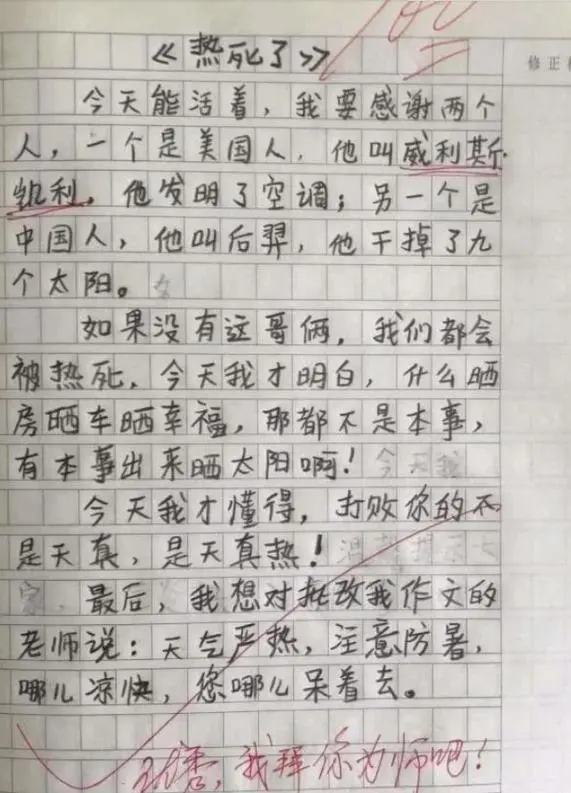 《热死了》
修正
今天能活着，我要感谢两个
人，一个是美国人，他叫威利斯
凯利，他发明了空调；另一个是
中国人，他叫后羿，他干掉了九
个太阳。
如果没有这哥俩，我们都会
被热死，今天我才明白，什么晒
房晒车晒幸福，那都不是本事，
有本事出来晒太阳啊！
今天我才懂得，打败你的不
是天真，是天真热！
最后，我想对批改我作文的
老师说：天气严热，注意防暑，
哪儿凉快，您哪儿呆着去。
我拜你为师吧！